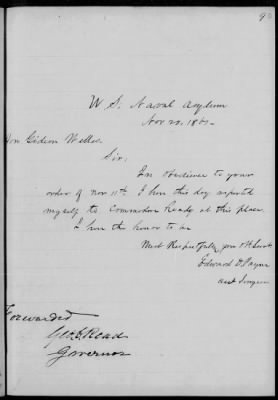 U. S. Naval Asylum
Nov 22. 1861-
Hon Gideon Welles.
Sir;
In obedience to your
order of Nov 11th I have this day reported
myself to Commodore Ready at this place.
I have the honor to be
Most Respectfully your Obt Servt
Edward D. Payne
Asst Surgeon
Forwarded
Geo. C. Read
Governor